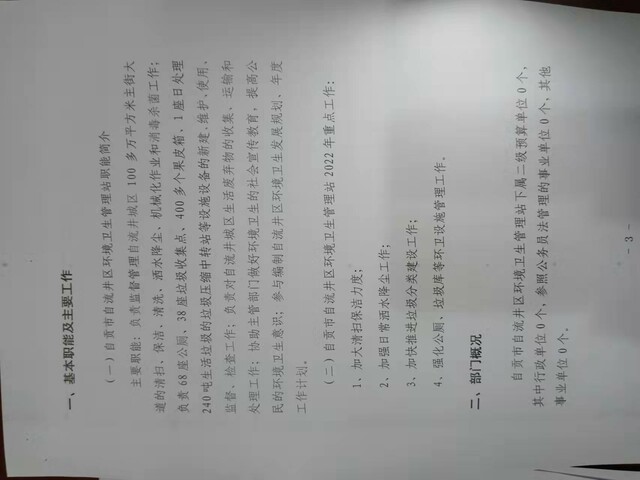 一、基本职能及主要工作
（一）自贡市自流井区环境卫生管理站职能简介
主要职能：负责监督管理自流井城区 100 多万平方米主街大
道的清扫、保洁、清洗、洒水降尘、机械化作业和消毒杀菌工作；
负责 68 座公厕、38 座垃圾收集点、400 多个果皮箱、1 座日处理
240 吨生活垃圾的垃圾压缩中转站等设施设备的新建、维护、使用、
监督、检查工作；负责对自流井城区生活废弃物的收集、运输和
处理工作；协助主管部门做好环境卫生的社会宣传教育，提高公
民的环境卫生意识；参与编制自流井区环境卫生发展规划、年度
工作计划。
（二）自贡市自流井区环境卫生管理站 2022 年重点工作：
1、加大清扫保洁力度；
2、加强日常洒水降尘工作；
3、加快推进垃圾分类建设工作；
4、强化公厕、垃圾库等环卫设施管理工作。
二、部门概况
自贡市自流井区环境卫生管理站下属二级预算单位 0 个，
其中行政单位 0 个，参照公务员法管理的事业单位 0 个，其他
事业单位 0 个。
- 3 -